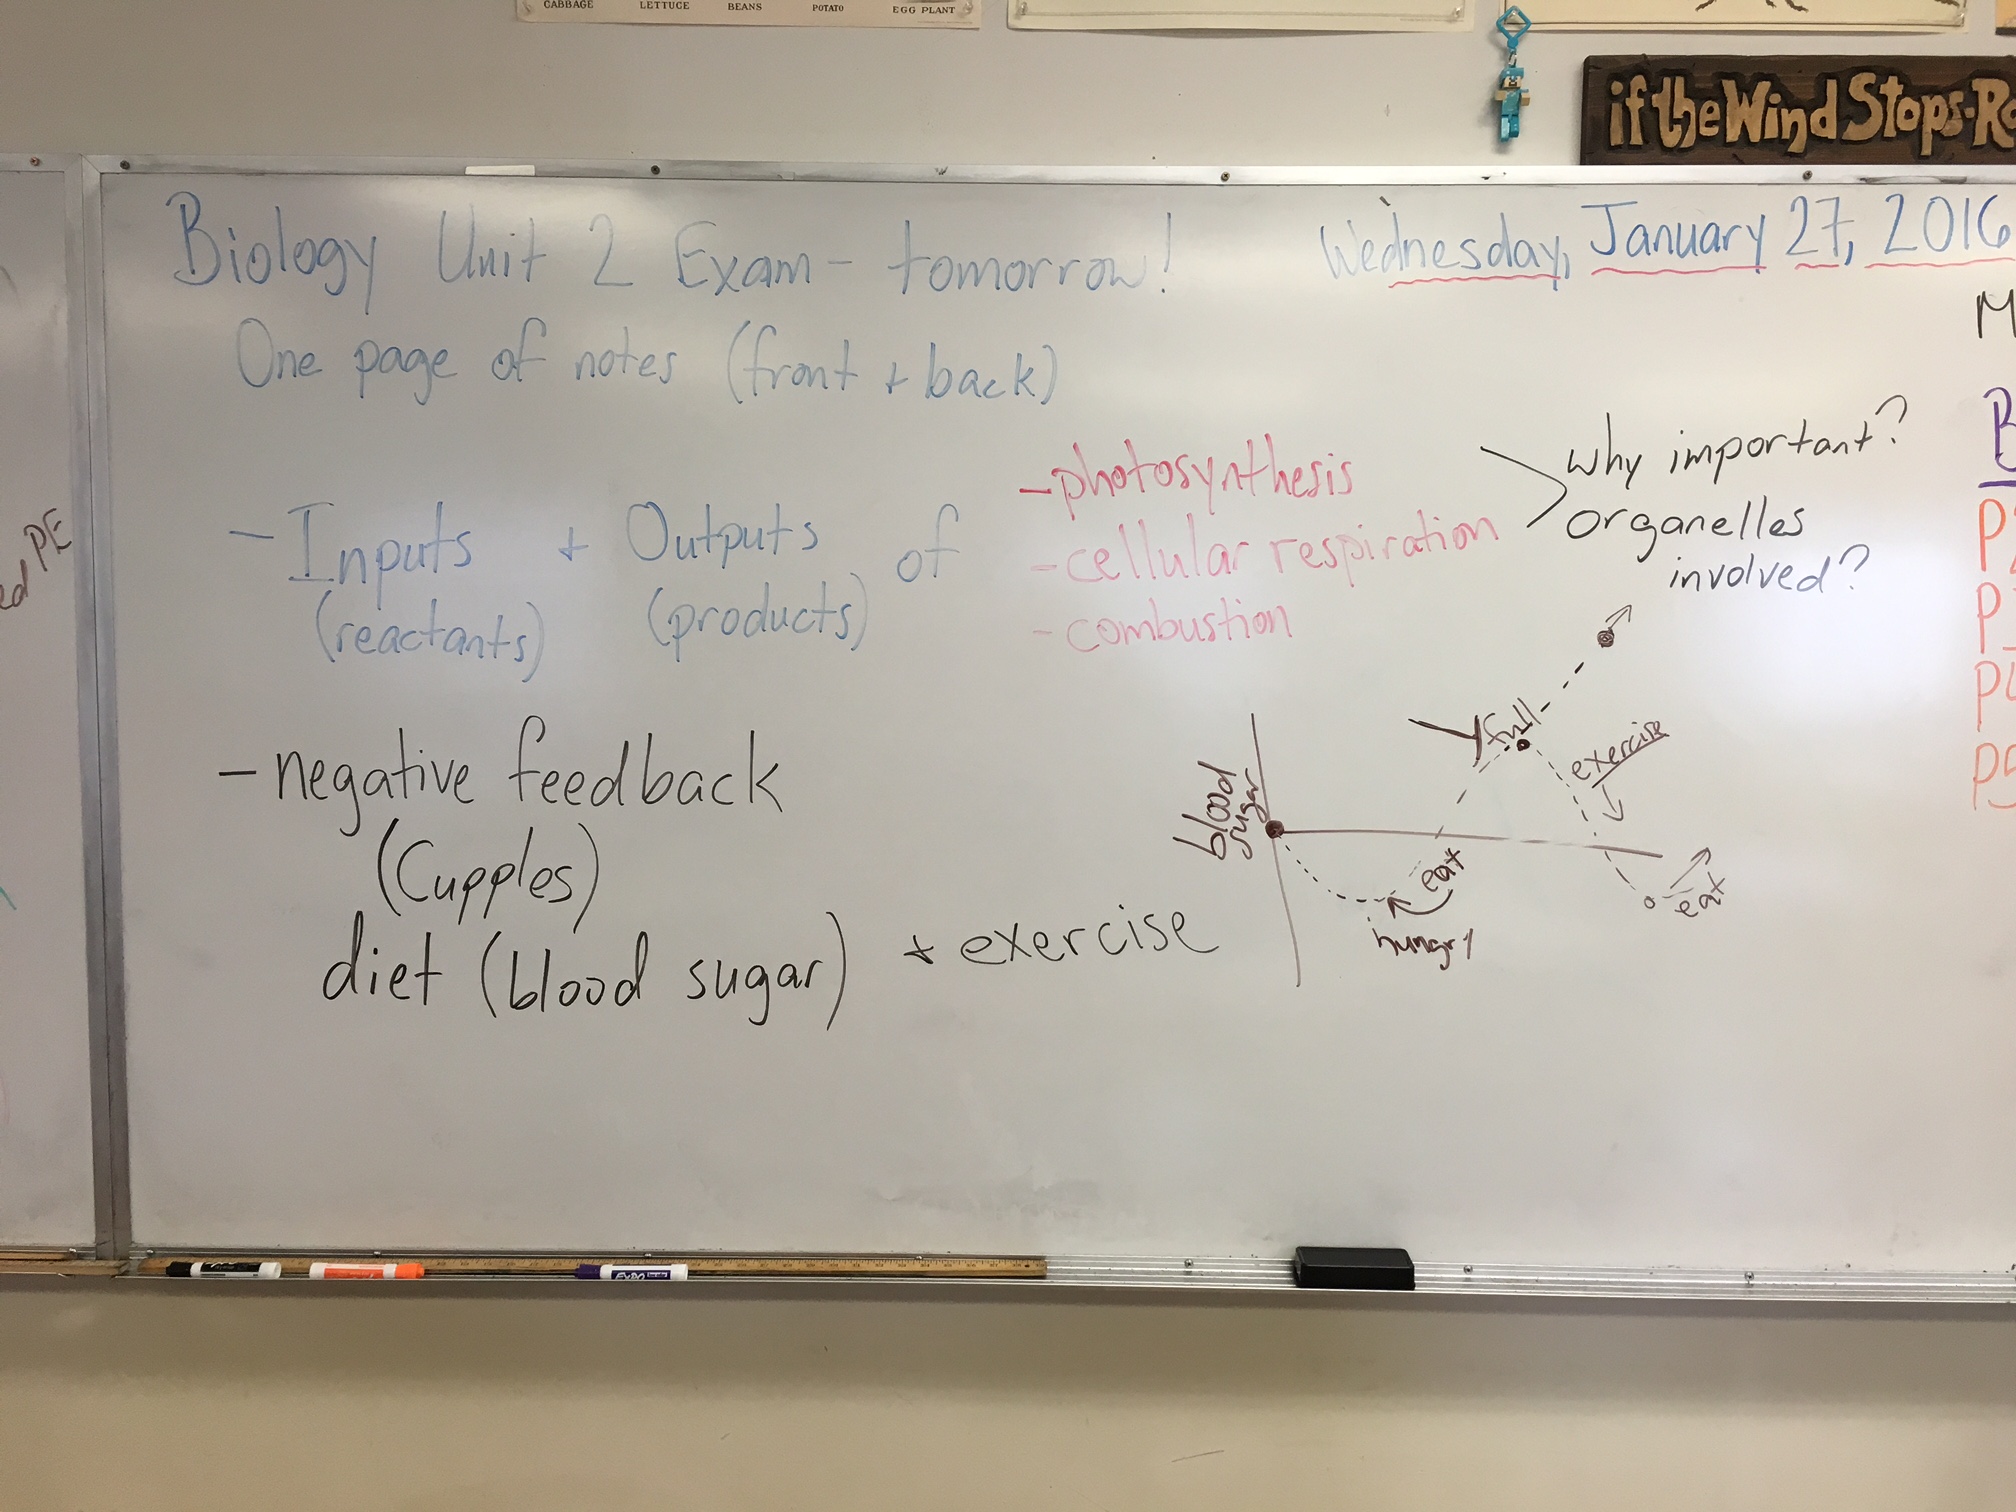 CABBAGE LETTUCE BEANS POTATO EGG PLANT
if the Wind Stops-Ro
Biology Unit 2 Exam - tomorrow!
Wednesday, January 27, 2016
One page of notes (front + back)
- Inputs + Outputs of
(reactants) (products)
- photosynthesis
- cellular respiration
- combustion
why important?
organelles
involved?
- negative feedback
(Cupples)
diet (blood sugar) + exercise
blood
sugar
full
exercise
eat
hungry
eat
PE
M
B
P
P
P4
P5
EXPO